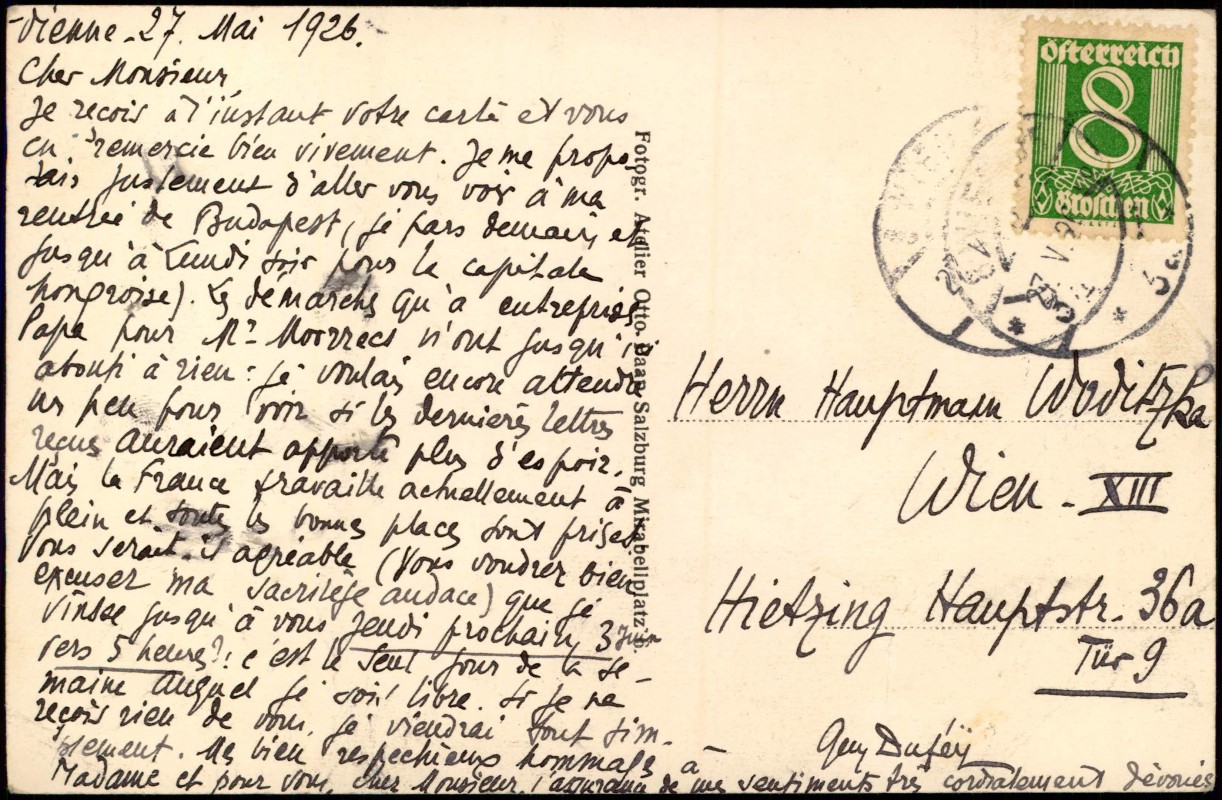 Vienne - 27. Mai 1926.
Cher Monsieur,
Je reçois à l'instant votre carte et vous
en remercie bien vivement. Je me propo-
sais justement d'aller vous voir à ma
rentrée de Budapest, (je pars demain et
jusqu'à Lundi soir pour la capitale
hongroise). Les démarches qu'a entreprises
Papa pour Mr n'ont jusqu'ici
abouti à rien : je voulais encore attendre
un peu pour voir si les dernières lettres
reçues auraient apporté plus d'espoir.
Mais la France travaille actuellement à
plein et toutes les bonnes places sont prises.
Vous serait-il agréable (Vous voudrez bien
excuser ma sacrilège audace) que je
vinsse jusqu'à vous Jeudi prochain, 3 Juin
vers 5 heures? : c'est le seul jour de la se-
maine auquel je sois libre. Si je ne
reçois rien de vous, je viendrai tout sim-
plement. Mes bien respectueux hommages à
Madame et pour vous, cher Monsieur, l'assurance de mes sentiments très cordialement dévoués
Guy Duféÿ
Fotogr. Atelier Otto Salzburg Mirabellplatz
Österreich
8
Groschen
WIEN
Herrn Hauptmann Woditzka
Wien - XIII
Hietzing Hauptstr. 36a
Tür 9